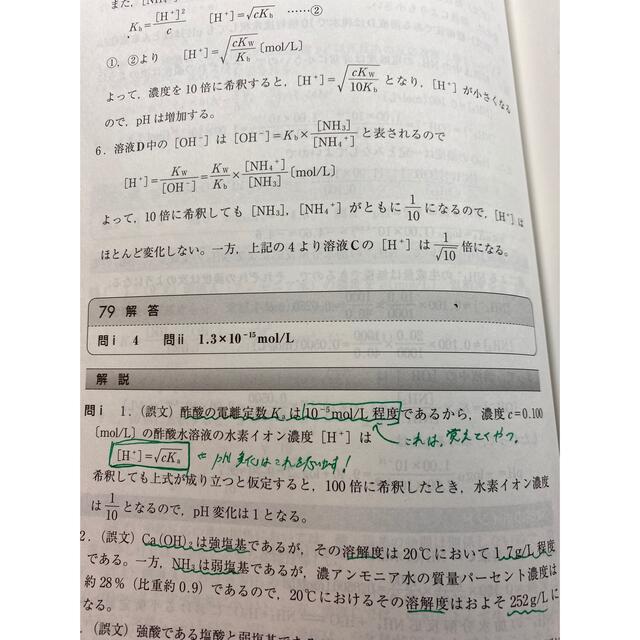 また,
K_b = [H⁺]²/c  [H⁺]=√cK_b ……②
①,②より [H⁺]=√(cK_W/K_b) [mol/L]
よって,濃度を10倍に希釈すると,[H⁺]=√(cK_W/10K_b) となり,[H⁺]が小さくなる
ので,pHは増加する。
6.溶液D中の[OH⁻]は[OH⁻]=K_b×[NH₃]/[NH₄⁺]と表されるので
[H⁺]=K_W/[OH⁻]=K_W/K_b×[NH₄⁺]/[NH₃] [mol/L]
よって,10倍に希釈しても[NH₃],[NH₄⁺]がともに1/10になるので,[H⁺]は
ほとんど変化しない。一方,上記の4より溶液Cの[H⁺]は1/√10倍になる。
79 解答
問i 4 問ii 1.3×10⁻¹⁵mol/L
解説
問i 1.(誤文)酢酸の電離定数K_aは10⁻⁵mol/L程度であるから,濃度c=0.100
[mol/L]の酢酸水溶液の水素イオン濃度[H⁺]は
これは、覚えてくやつ。
[H⁺]=√cK_a
pH変化はこれを
希釈しても上式が成り立つと仮定すると,100倍に希釈したとき,水素イオン濃度
は1/10となるので,pH変化は1となる。
2.(誤文)Ca(OH)₂は強塩基であるが,その溶解度は20℃において1.7g/L程度
である。一方,NH₃は弱塩基であるが,濃アンモニア水の質量パーセント濃度は
約28%(比重約0.9)であるので,20℃におけるその溶解度はおよそ252g/Lに
なる。
.(誤文)強酸である塩酸と弱塩基である